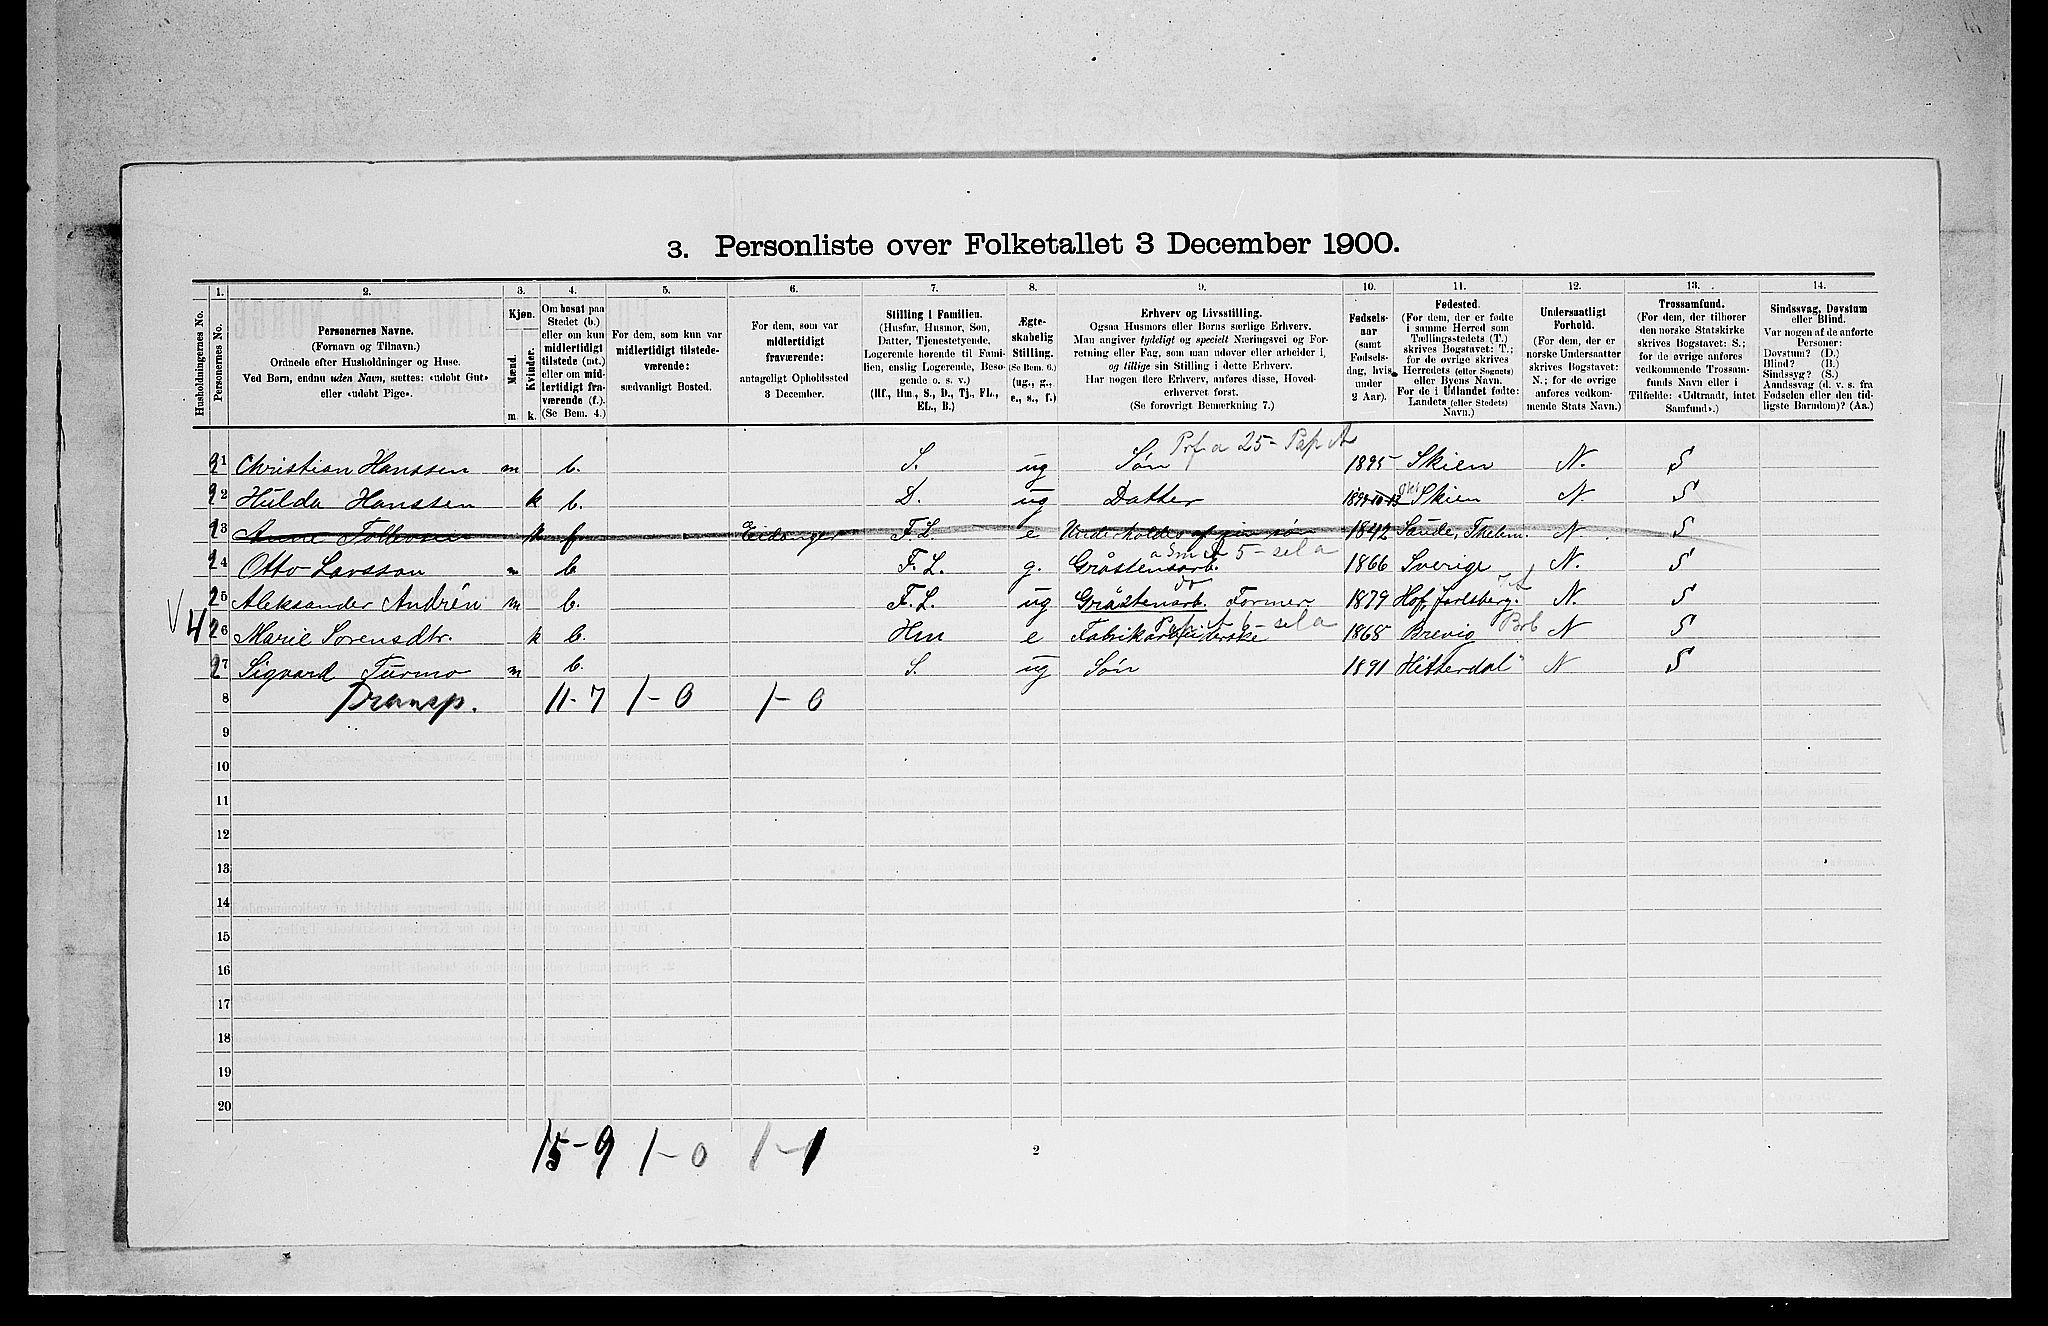 3. Personliste over Folketallet 3 December 1900.
1. 2. 3. 4. 5. 6. 7. 8. 9. 10. 11. 12. 13. 14.
Husholdningernes No.
Personernes No.
Personernes Navne.
(Fornavn og Tilnavn.)
Ordnede efter Husholdninger og Huse.
Ved Børn, endnu uden Navn, sættes: «udøbt Gut»
eller «udøbt Pige».
Kjøn.
Mænd.
Kvinder.
m k.
Om bosat paa
Stedet (b.)
eller om kun
midlertidigt
tilstede (mt.)
eller om mid-
lertidigt fra-
værende (f.).
(Se Bem. 4.)
For dem, som kun var
midlertidigt tilstede-
værende:
sædvanligt Bosted.
For dem, som var
midlertidigt
fraværende:
antageligt Opholdssted
3 December.
Stilling i Familien.
(Husfar, Husmor, Søn,
Datter, Tjenestetyende,
Logerende hørende til Fami-
lien, enslig Logerende, Besø-
gende o. s. v.)
(Hf., Hm., S., D., Tj., FL.,
EL., B.)
Ægte-
skabelig
Stilling.
(Se Bem. 6.)
(ug., g.,
e., s., f.)
Erhverv og Livsstilling.
Ogsaa Husmors eller Børns særlige Erhverv.
Man angiver tydeligt og specielt Næringsvei og For-
retning eller Fag, som man udøver eller arbeider i,
og tillige sin Stilling i dette Erhverv.
Har nogen flere Erhverv, anføres disse, Hoved-
erhvervet først.
(Se forøvrigt Bemerkning 7.)
Fødsels-
aar
(samt
Fødsels-
dag, hvis
under
2 Aar).
Fødested.
(For dem, der er fødte
i samme Herred som
Tællingsstedets (T.)
skrives Bogstavet: T.;
for de øvrige skrives
Herredets (eller Sognets)
eller Byens Navn.
For de i Udlandet fødte:
Landets (eller Stedets)
Navn.)
Undersaatligt
Forhold.
(For dem, der er
norske Undersaatter
skrives Bogstavet:
N.; for de øvrige
anføres vedkom-
mende Stats Navn.)
Trossamfund.
(For dem, der tilhører
den norske Statskirke
skrives Bogstavet: S.;
for de øvrige anføres
vedkommende Trossam-
funds Navn eller i
Tilfælde: «Udtraadt, intet
Samfund».)
Sindssvag, Døvstum
eller Blind.
Var nogen af de anførte
Personer:
Døvstum? (D.)
Blind? (B.)
Sindssyg? (S.)
Aandssvag (d. v. s. fra
Fødselen eller den tid-
ligste Barndom)? (Aa.)
21 Christian Hanssen m b. S. ug Søn 1895 Skien N. S
22 Hulda Hanssen k b. D. ug Datter Skien N. S
23 Anne k f Eidanger F L e 1842 Sande, Thelem. N. S
24 Otto Larsson m b F. L. g. Gråstensarb. 1866 Sverige N. S
25 Aleksander Andrén m b. F. L. ug Gråstensarb. Former 1879 Hof, Jarlsberg N. S
4 26 Marie Sørensdtr. k b. Hm e Fabrikarbeiderske 1868 Brevig N S
27 Sigvard Turmo m b. S. ug Søn 1891 Hitterdal N S
8 Transp. 11-7 1-0 1-0
9
10
11
12
13
14
15
16
17
18
19
20
15-9 1-0 1-1
2